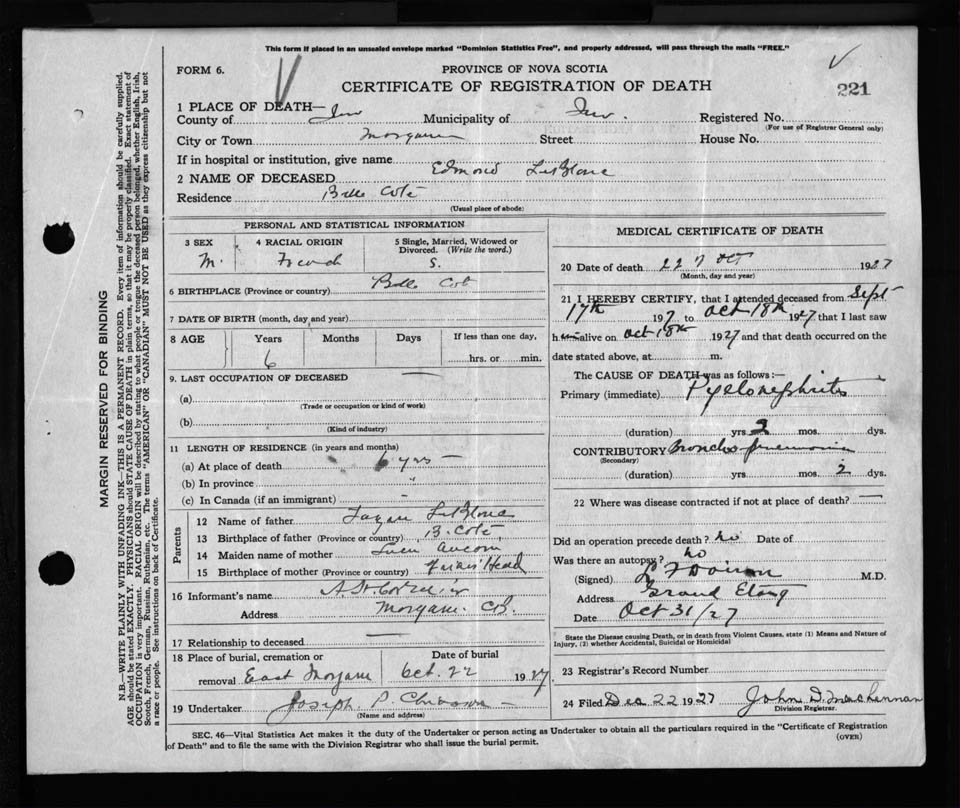 This form if placed in an unsealed envelope marked "Dominion Statistics Free", and properly addressed, will pass through the mails "FREE."
FORM 6.
PROVINCE OF NOVA SCOTIA
CERTIFICATE OF REGISTRATION OF DEATH
221
1 PLACE OF DEATH—
County of Inv Municipality of Inv. Registered No.
(For use of Registrar General only)
City or Town Margaree Street House No.
If in hospital or institution, give name
2 NAME OF DECEASED Edmond LeBlanc
Residence Belle Coté
(Usual place of abode)
PERSONAL AND STATISTICAL INFORMATION
3 SEX 4 RACIAL ORIGIN 5 Single, Married, Widowed or Divorced. (Write the word.)
M. French S.
6 BIRTHPLACE (Province or country) Belle Cot
7 DATE OF BIRTH (month, day and year)
8 AGE Years Months Days If less than one day,
6 hrs. or min.
9. LAST OCCUPATION OF DECEASED —
(a)
(Trade or occupation or kind of work)
(b)
(Kind of industry)
11 LENGTH OF RESIDENCE (in years and months)
(a) At place of death 6 yrs —
(b) In province "
(c) In Canada (if an immigrant) —
Parents
12 Name of father LeBlanc
13 Birthplace of father (Province or country) B. Coté
14 Maiden name of mother Aucoin
15 Birthplace of mother (Province or country) Friar's Head
16 Informant's name
Address Margaree C.B.
17 Relationship to deceased —
18 Place of burial, cremation or removal East Margaree
Date of burial Oct. 22 1927
19 Undertaker Joseph P. Chiasson —
(Name and address)
MEDICAL CERTIFICATE OF DEATH
20 Date of death 22 Oct 1927
(Month, day and year)
21 I HEREBY CERTIFY, that I attended deceased from Sept
17th 192 to Oct 18th 1927 that I last saw
h im alive on Oct 18th 1927 and that death occurred on the
date stated above, at m.
The CAUSE OF DEATH was as follows:—
Primary (immediate) Pyelonephritis
(duration) yrs. 2 mos. dys.
CONTRIBUTORY Broncho pneumonia
(Secondary)
(duration) yrs. mos. 2 dys.
22 Where was disease contracted if not at place of death? —
Did an operation precede death? No Date of
Was there an autopsy? No
(Signed) M.D.
Address Grand Etang
Date Oct 31/27
State the Disease causing Death, or in death from Violent Causes, state (1) Means and Nature of Injury, (2) whether Accidental, Suicidal or Homicidal
23 Registrar's Record Number
24 Filed Dec 22 1927 John D. MacLennan
Division Registrar.
SEC. 46—Vital Statistics Act makes it the duty of the Undertaker or person acting as Undertaker to obtain all the particulars required in the "Certificate of Registration
of Death" and to file the same with the Division Registrar who shall issue the burial permit.
(OVER)
MARGIN RESERVED FOR BINDING
N.B.—WRITE PLAINLY WITH UNFADING INK—THIS IS A PERMANENT RECORD. Every item of information should be carefully supplied.
AGE should be stated EXACTLY. PHYSICIANS should STATE CAUSE OF DEATH in plain terms, so that it may be properly classified. Exact statement of
OCCUPATION is very important. RACIAL ORIGIN will be described by stating to what people or tongue the deceased person belonged, whether English, Irish,
Scotch, French, German, Russian, Ruthenian, etc. The terms "AMERICAN" or "CANADIAN" MUST NOT BE USED as they express citizenship but not
a race or people. See instructions on back of Certificate.